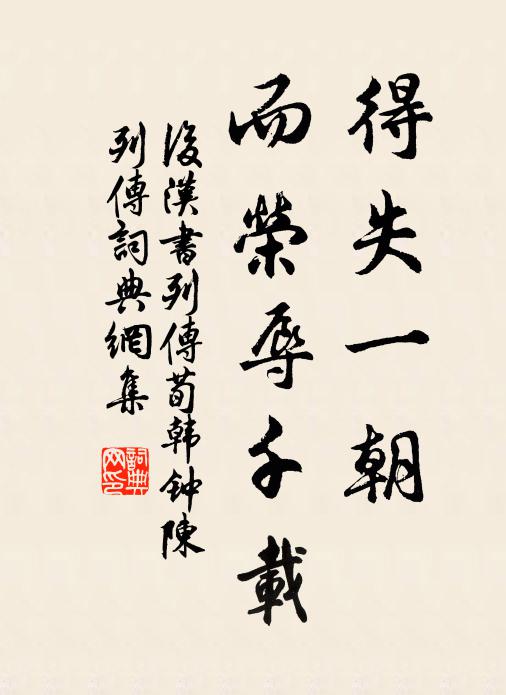 得失一朝
而榮辱千載
後漢書列傳荀韓钟陳
列傳詞典網集
詞典网印